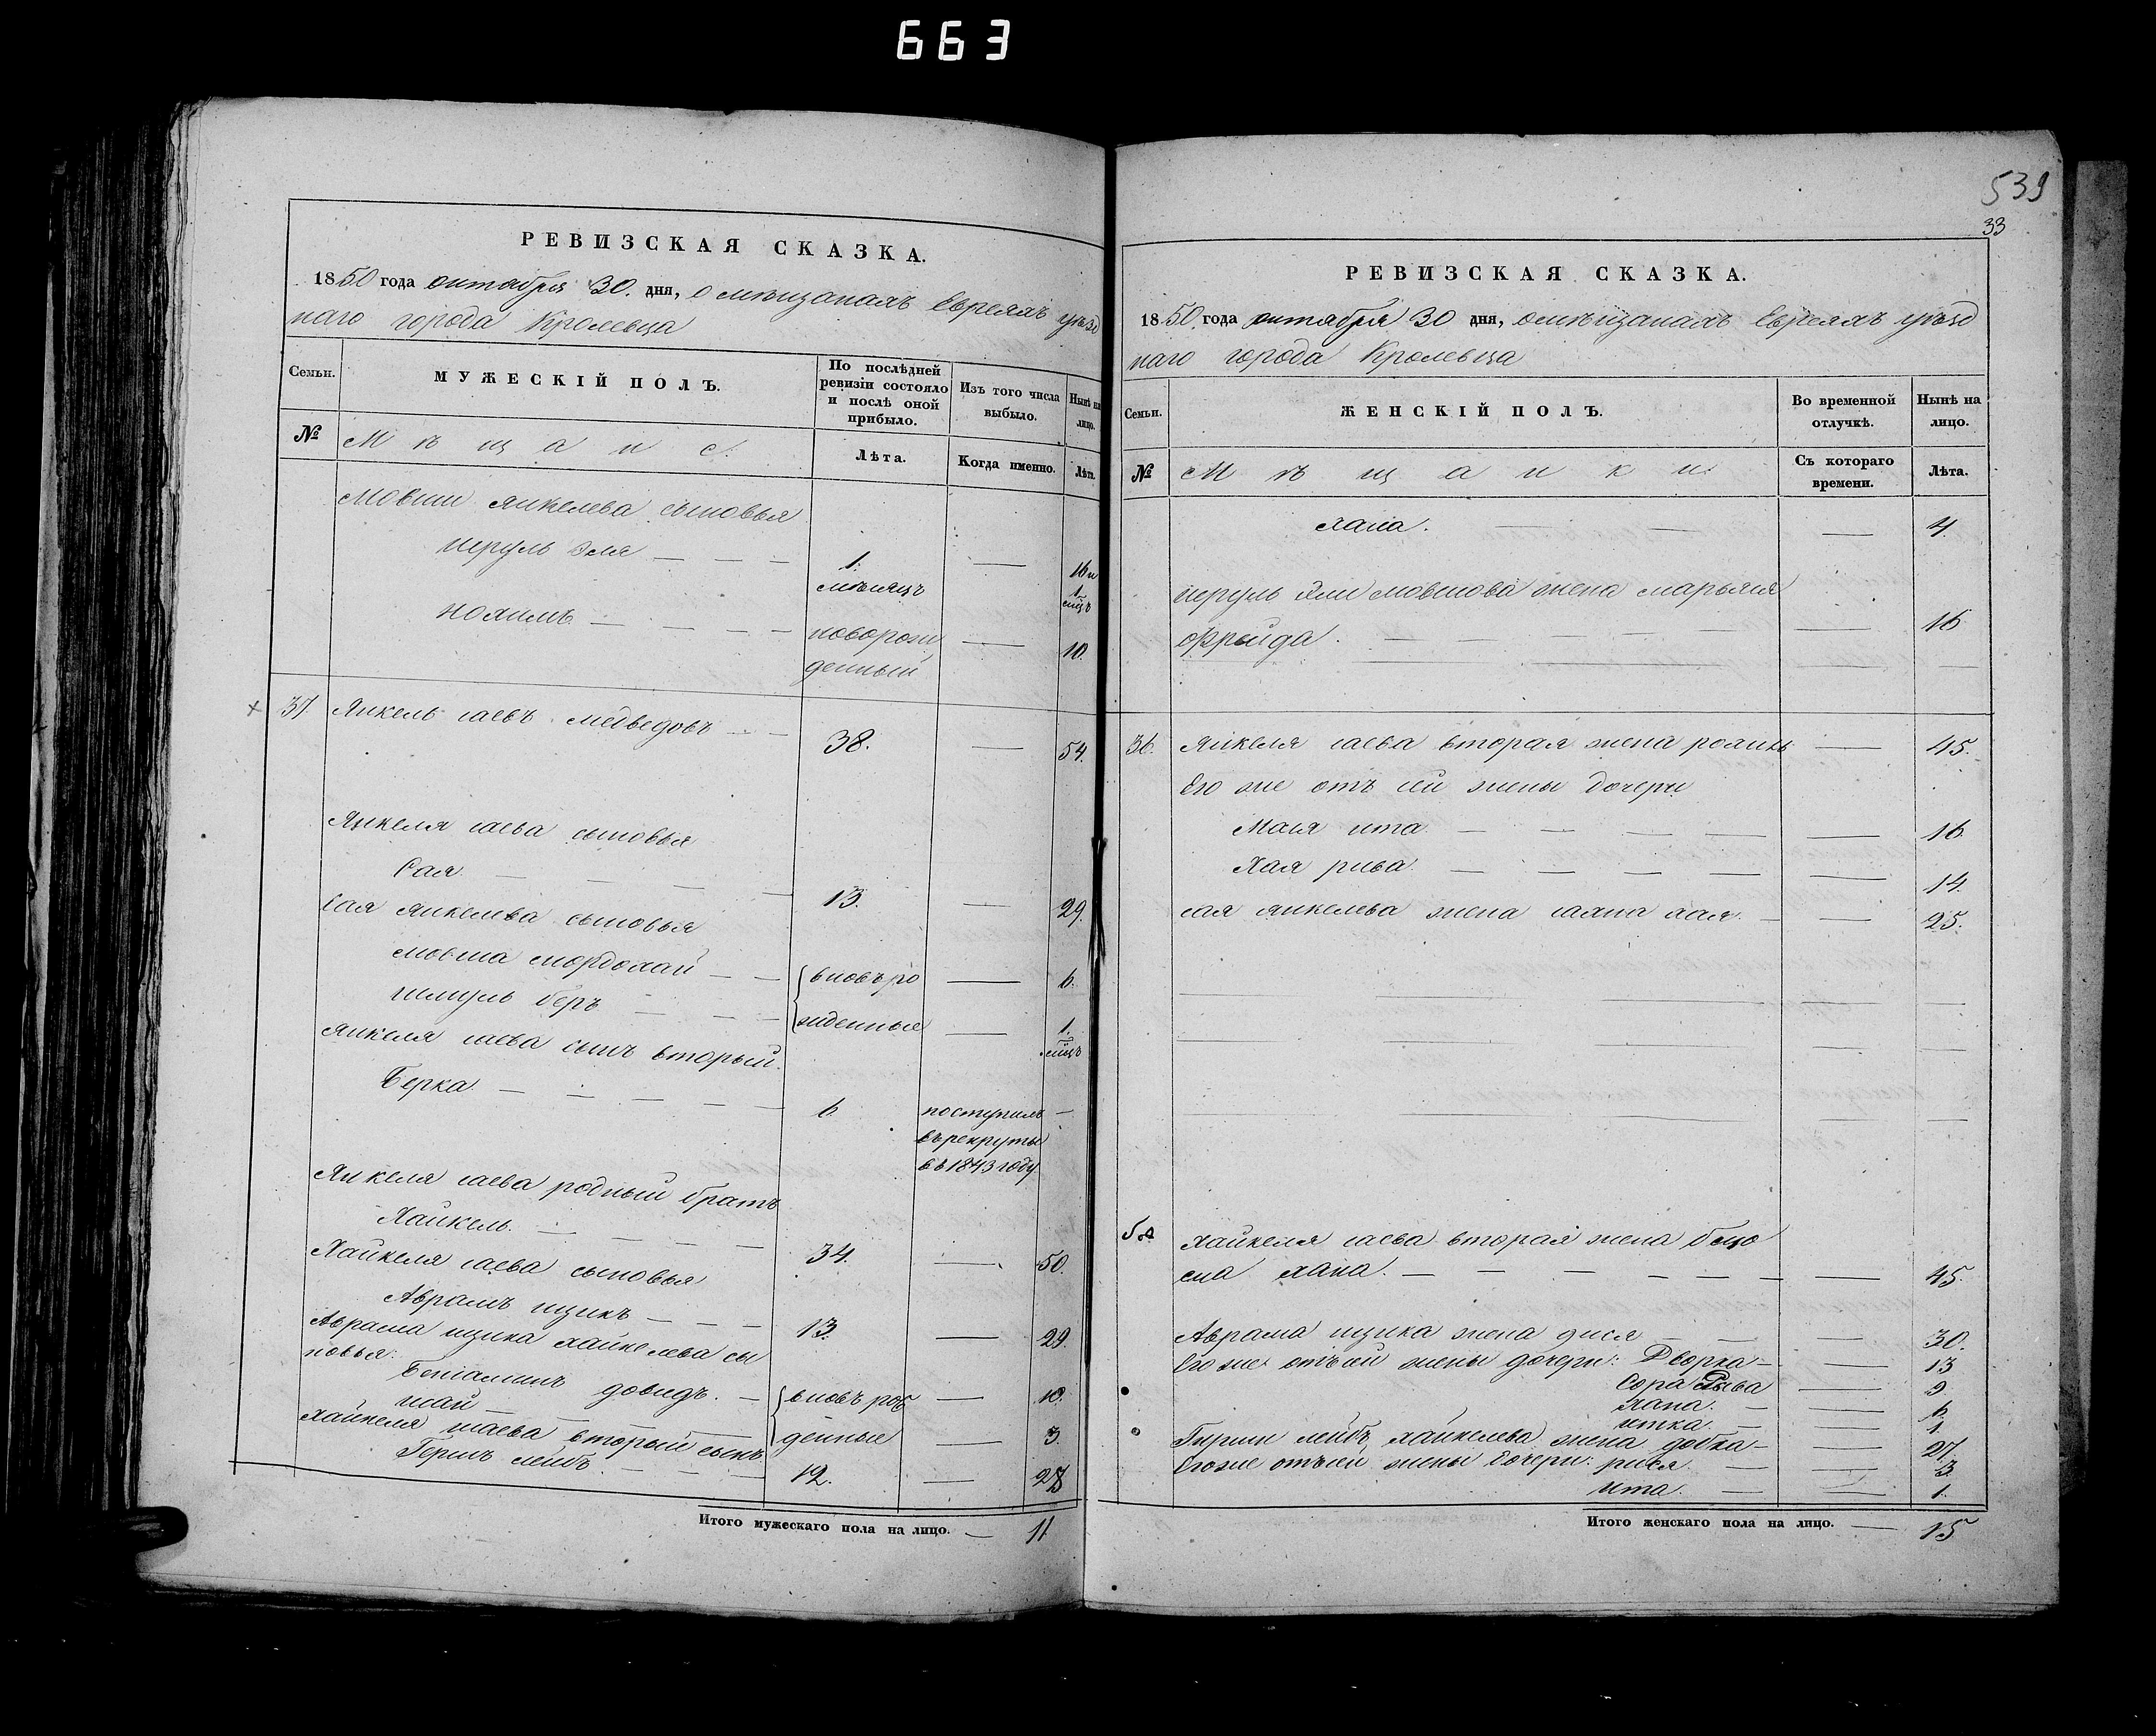 663
РЕВИЗСКАЯ СКАЗКА.
1850 года октября 30. дня, о мѣщанахъ Евреяхъ уѣзд
наго города Кролевца
Семьи.
МУЖЕСКІЙ ПОЛЪ.
По послѣдней ревизіи состояло и послѣ оной прибыло.
Изъ того числа выбыло.
Нынѣ на лицо.
№
Мѣщане.
Лѣта.
Когда именно.
Лѣта.
Мовши Янкелева сыновья
Эля — — — 1. мѣсяцъ — 16 и 1 мцъ
— — — — новорож
денный — 10.
37 Янкель саевъ медведовъ — — 38. — 54.
Янкеля саева сыновья
Сая. — — — — 13. — 29.
Сая янкелева сыновья
мовша мордохай — — вновь ро — 6.
шмуль беръ — — — жденные — 1. мцъ
Янкеля саева сынъ вторый.
Берка. — — — — — 6 поступилъ —
въ рекруты
въ 1843 году.
Янкеля саева родный братъ
Хайкель. — — — — 34. — 50.
Хайкеля саева сыновья
Аврамъ ицикъ — — — 13. — 29.
Аврама ицика хайкелева сы
новья:
Беніаминъ довидъ. — вновь рож — 10.
исай — — — денные — 3.
хайкеля шаева вторый сынъ
Гершъ лейбъ. — — — 12. — 28
Итого мужескаго пола на лицо. — 11
539
33
РЕВИЗСКАЯ СКАЗКА.
1850. года октября 30 дня, о мѣщанахъ Евреяхъ уѣзд
наго города Кролевца
Семьи.
ЖЕНСКІЙ ПОЛЪ.
Во временной отлучкѣ.
Нынѣ на лицо.
№
Мѣщанки.
Съ котораго времени.
Лѣта.
хана. — — — 4.
Эли мовшова жена марьяся
фрейда. — — — — — 16
36. Янкеля саева вторая жена — 45.
Его же отъ сей жены дочери
Мася ита. — — — — — 16.
Хая рива. — — — — — 14.
сая янкелева жена хая. — — 25.
58. хайкеля саева вторая жена
хана. — — — — — — — 45.
Аврама ицика жена — — — 30.
Его же отъ сей жены дочери: Дворка — — 13
Сора Рыва — 9.
хана. — — 6.
итка. — — 1.
Гирши лейбъ хайкелева жена добка — — 27.
Его же отъ сей жены дочери: — — 3.
ита. — — 1.
Итого женскаго пола на лицо. — 15